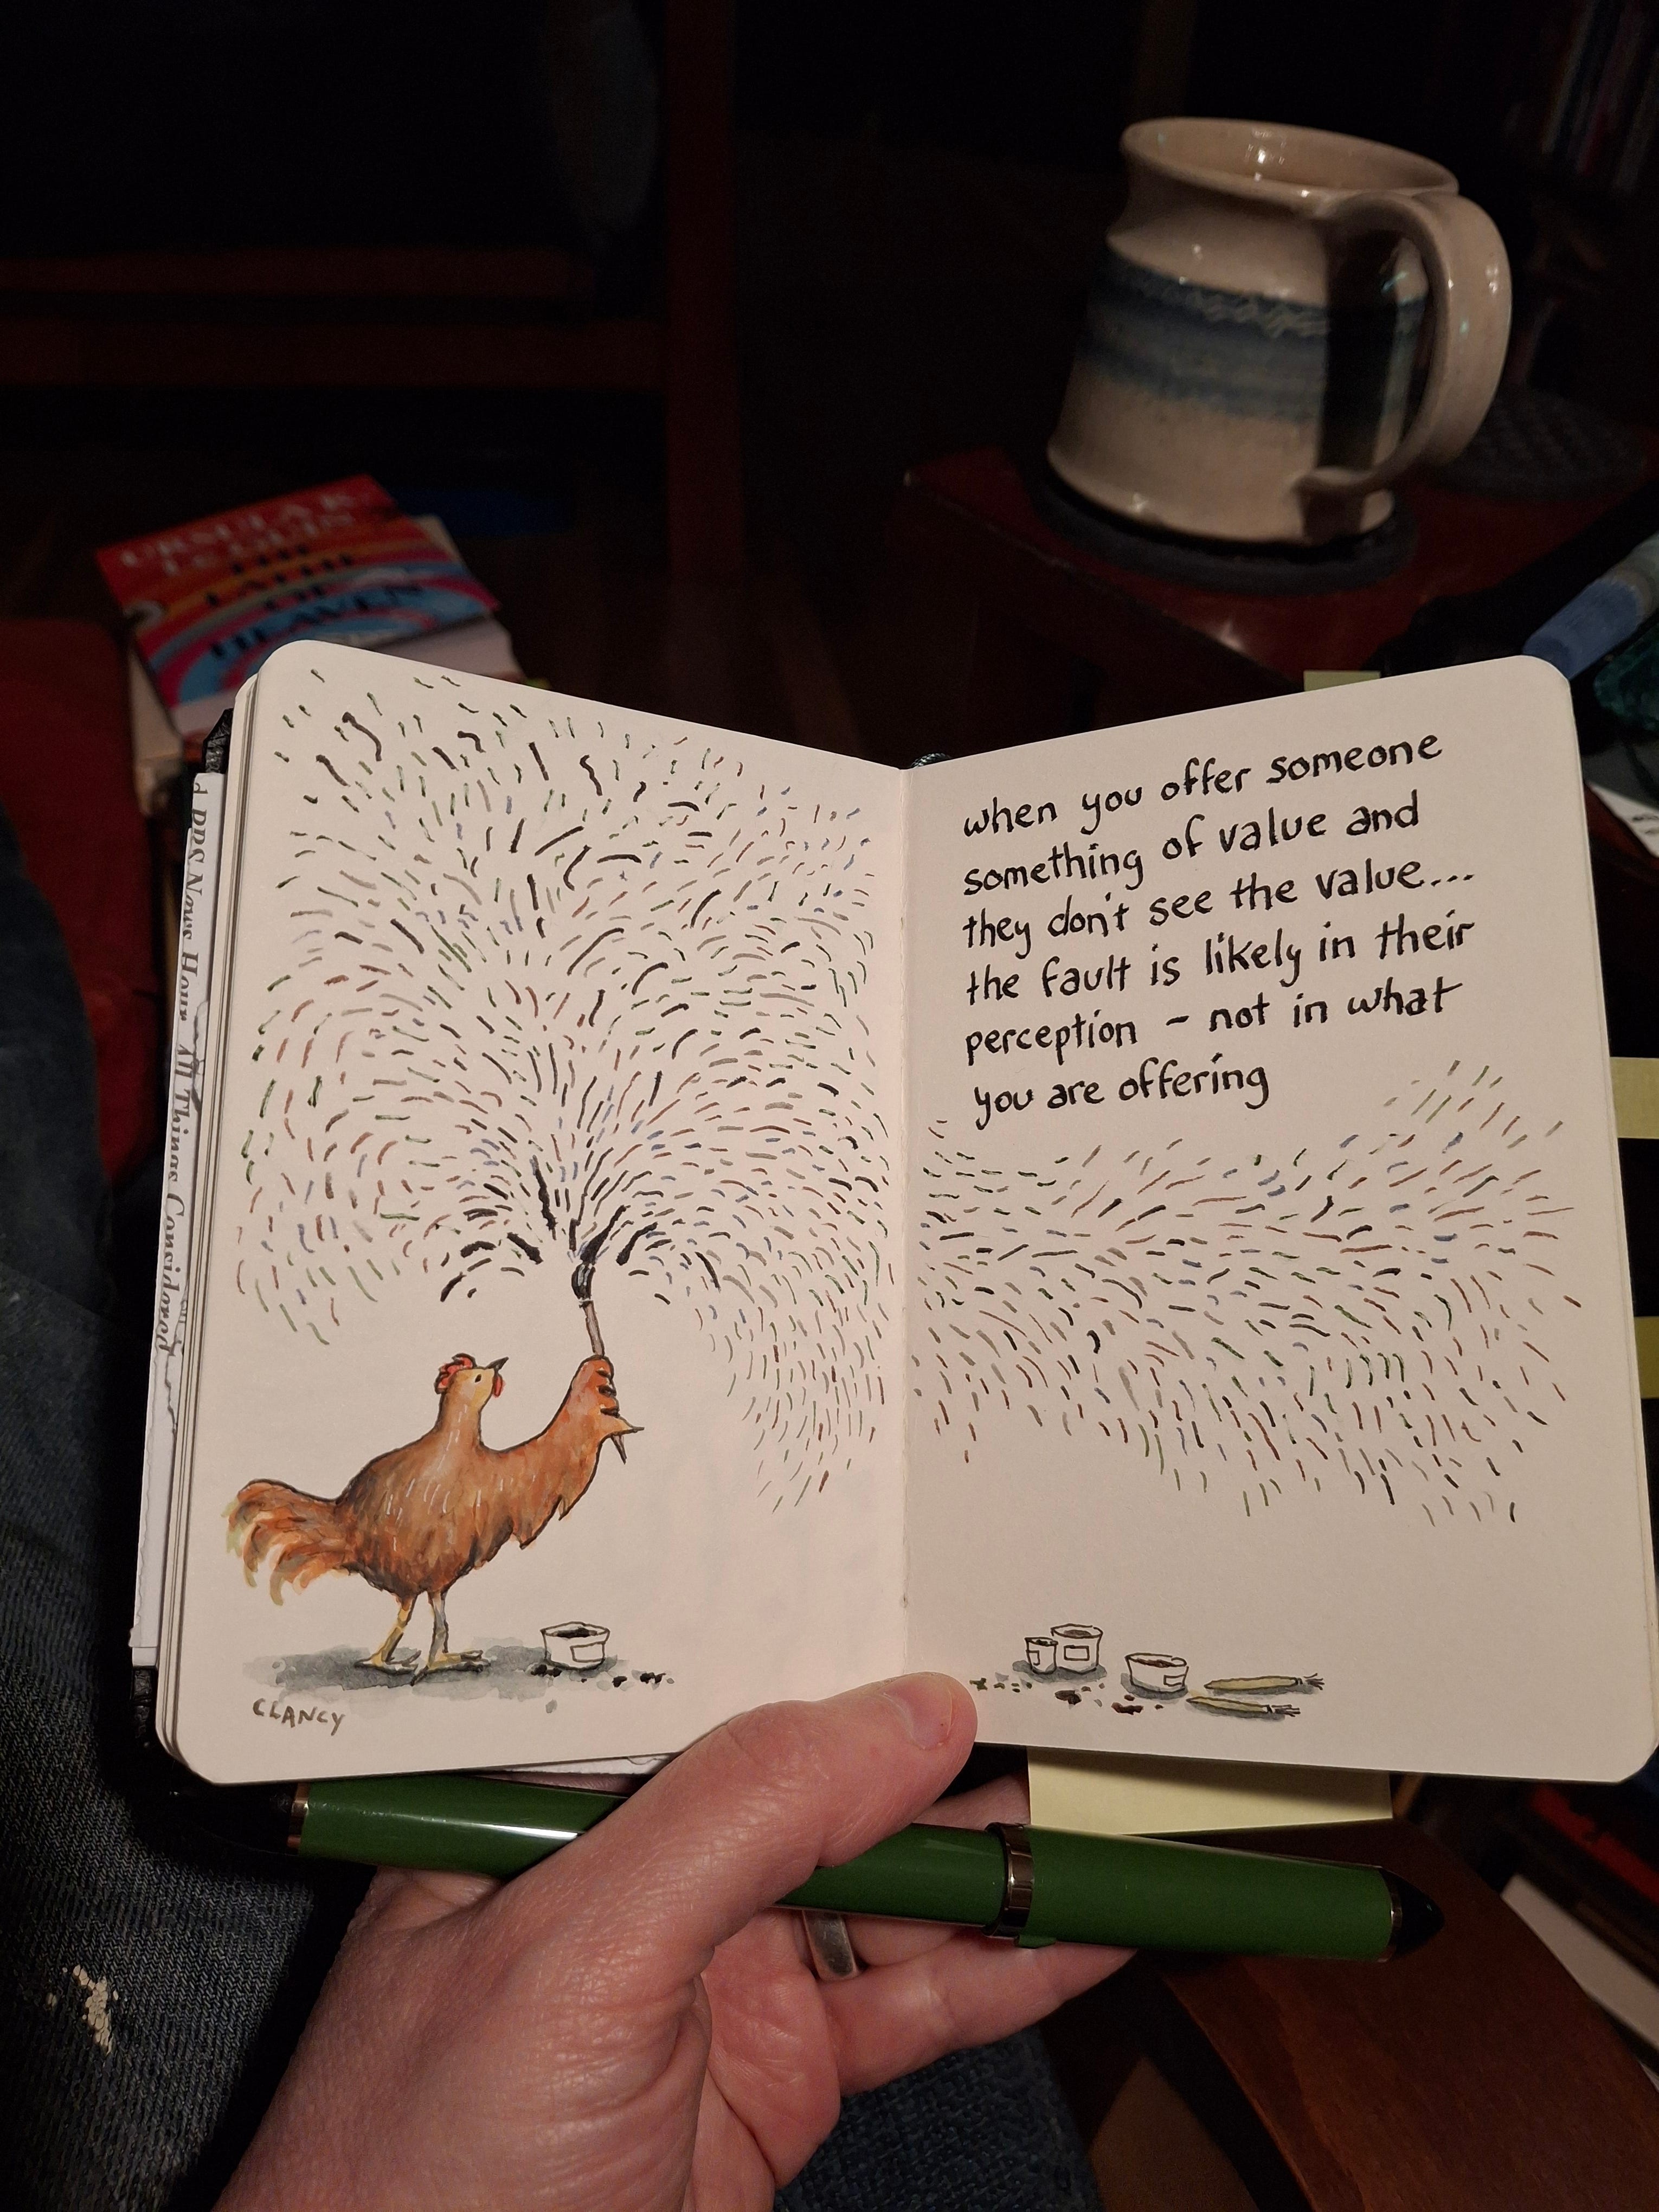 URSULA K.
LE GUIN
THE
LATHE
OF
HEAVEN
when you offer someone
something of value and
they don't see the value...
the fault is likely in their
perception - not in what
you are offering
CLANCY
All Things Considered